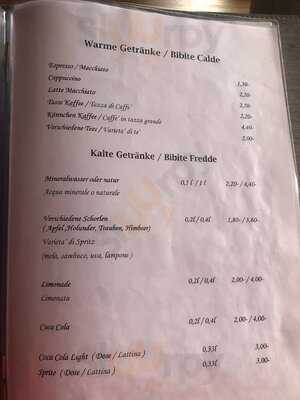 Warme Getränke / Bibite Calde
Espresso / Macchiato
Cappuccino 1,30-
Latte Macchiato 2,30-
Tasse Kaffee / Tazza di Caffe' 2,30-
Kännchen Kaffee / Caffe' in tazza grande 2,20-
Verschiedene Tees / Varieta' di te' 4,40-
2,00-
Kalte Getränke / Bibite Fredde
Mineralwasser oder natur 0,5 l / 1 l 2,20- / 4,40-
Acqua minerale o naturale
Verschiedene Schorlen 0,2l / 0,4l 1,80- / 3,60-
( Apfel ,Holunder, Trauben, Himbeer)
Varieta' di Spritz
(mela, sambuco, uva, lampone )
Limonade 0,2l / 0,4l 2,00- / 4,00-
Limonata
Coca Cola 0,2l / 0,4l 2,00- / 4,00-
Coca Cola Light ( Dose / Lattina ) 0,33l 3,00-
Sprite ( Dose / Lattina ) 0,33l 3,00-